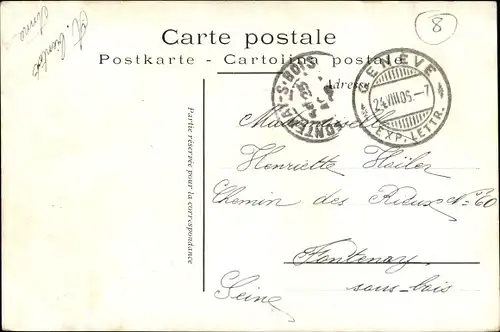 8
Carte postale
Postkarte - Cartolina postale
Adresse
GENÈVE
24.VIII.05.-7
EXP. LETTR.
FONTENAY-S-BOIS
Partie réservée pour la correspondance
Mademoiselle
Henriette Heiler
Chemin des Rieux No 60
Fontenay
sous-bois
Seine